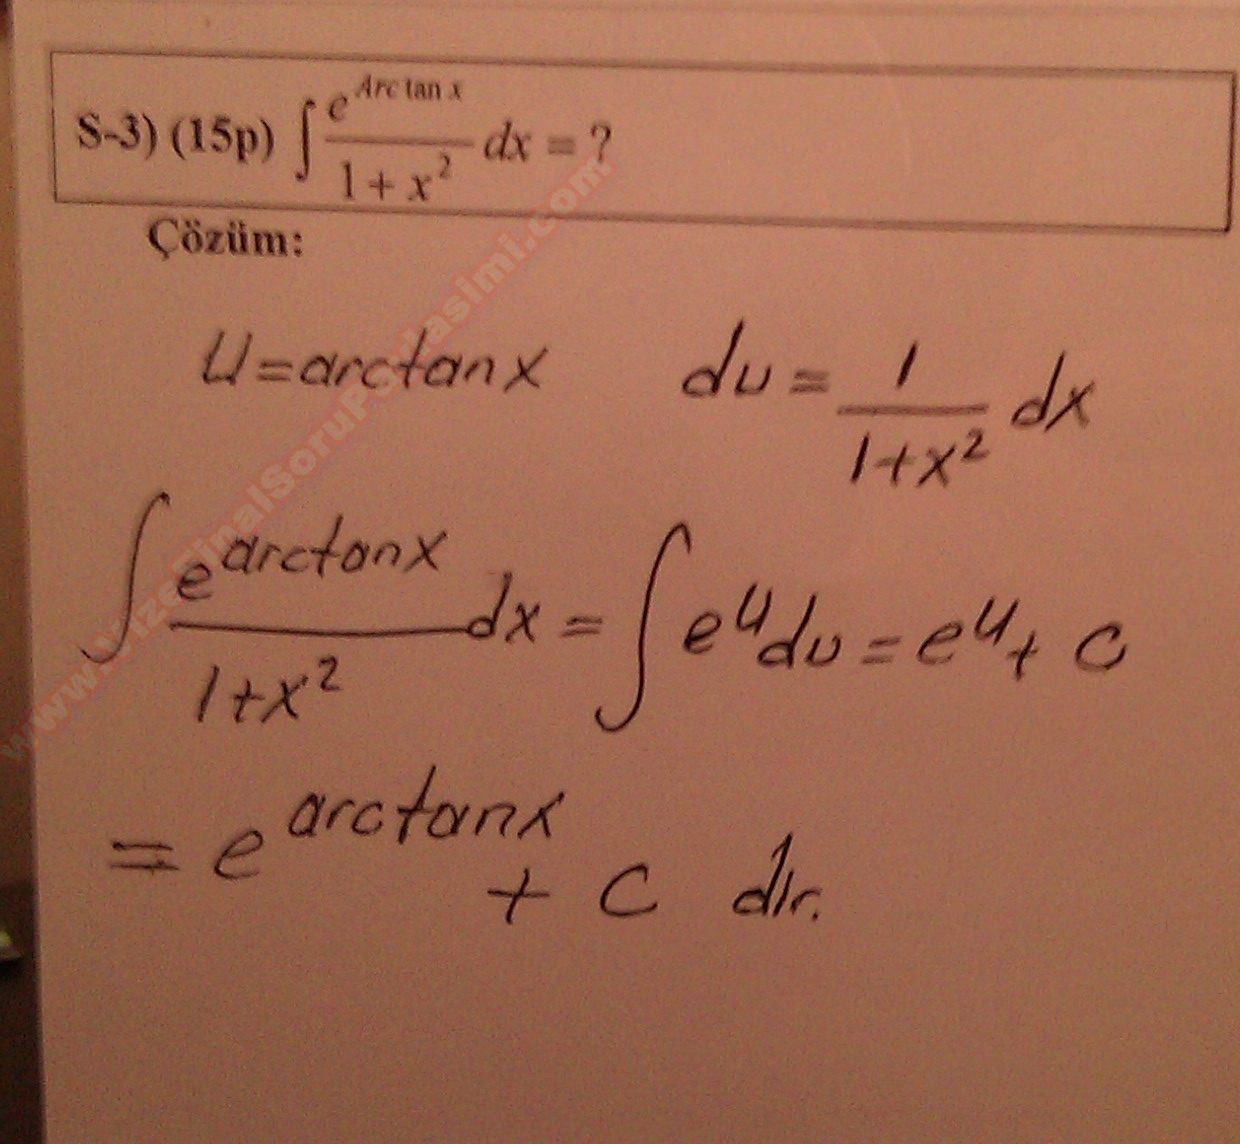 S-3) (15p) ∫ e^(Arctan x) / (1 + x²) dx = ?
Çözüm:
u = arctan x    du = 1/(1+x²) dx
∫ e^(arctan x) / (1+x²) dx = ∫ e^u du = e^u + c
= e^(arctan x) + c dır.
www.VizeFinalSoruPaylasimi.com